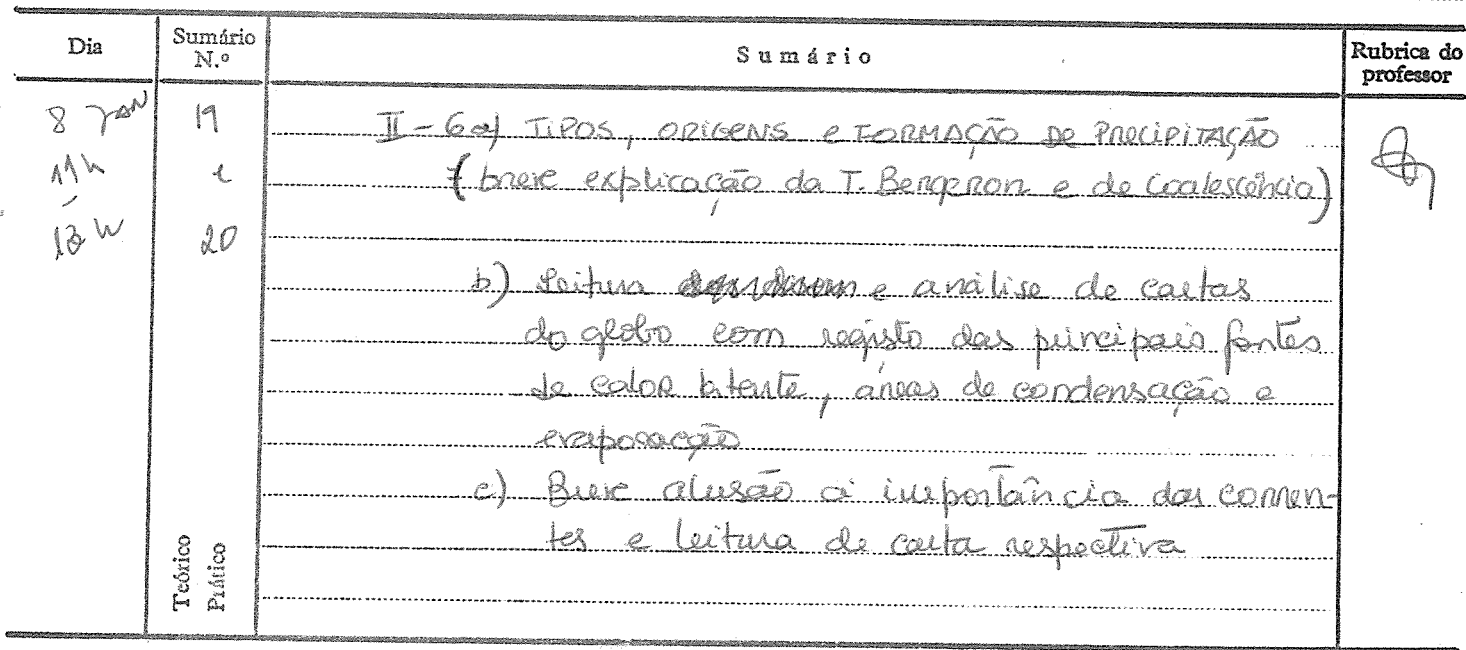 Dia
Sumário N.º
Sumário
Rubrica do professor
8 JAN
11h
-
13h
19
e
20
II - 6 a) TIPOS, ORIGENS e FORMAÇÃO DE PRECIPITAÇÃO
(breve explicação da T. Bergeron e de Coalescência)
b) Leitura e análise de cartas
do globo com registo das principais fontes
de calor latente, áreas de condensação e
evaporação
c) Breve alusão à importância das corren-
tes e leitura de carta respectiva
Teórico
Prático